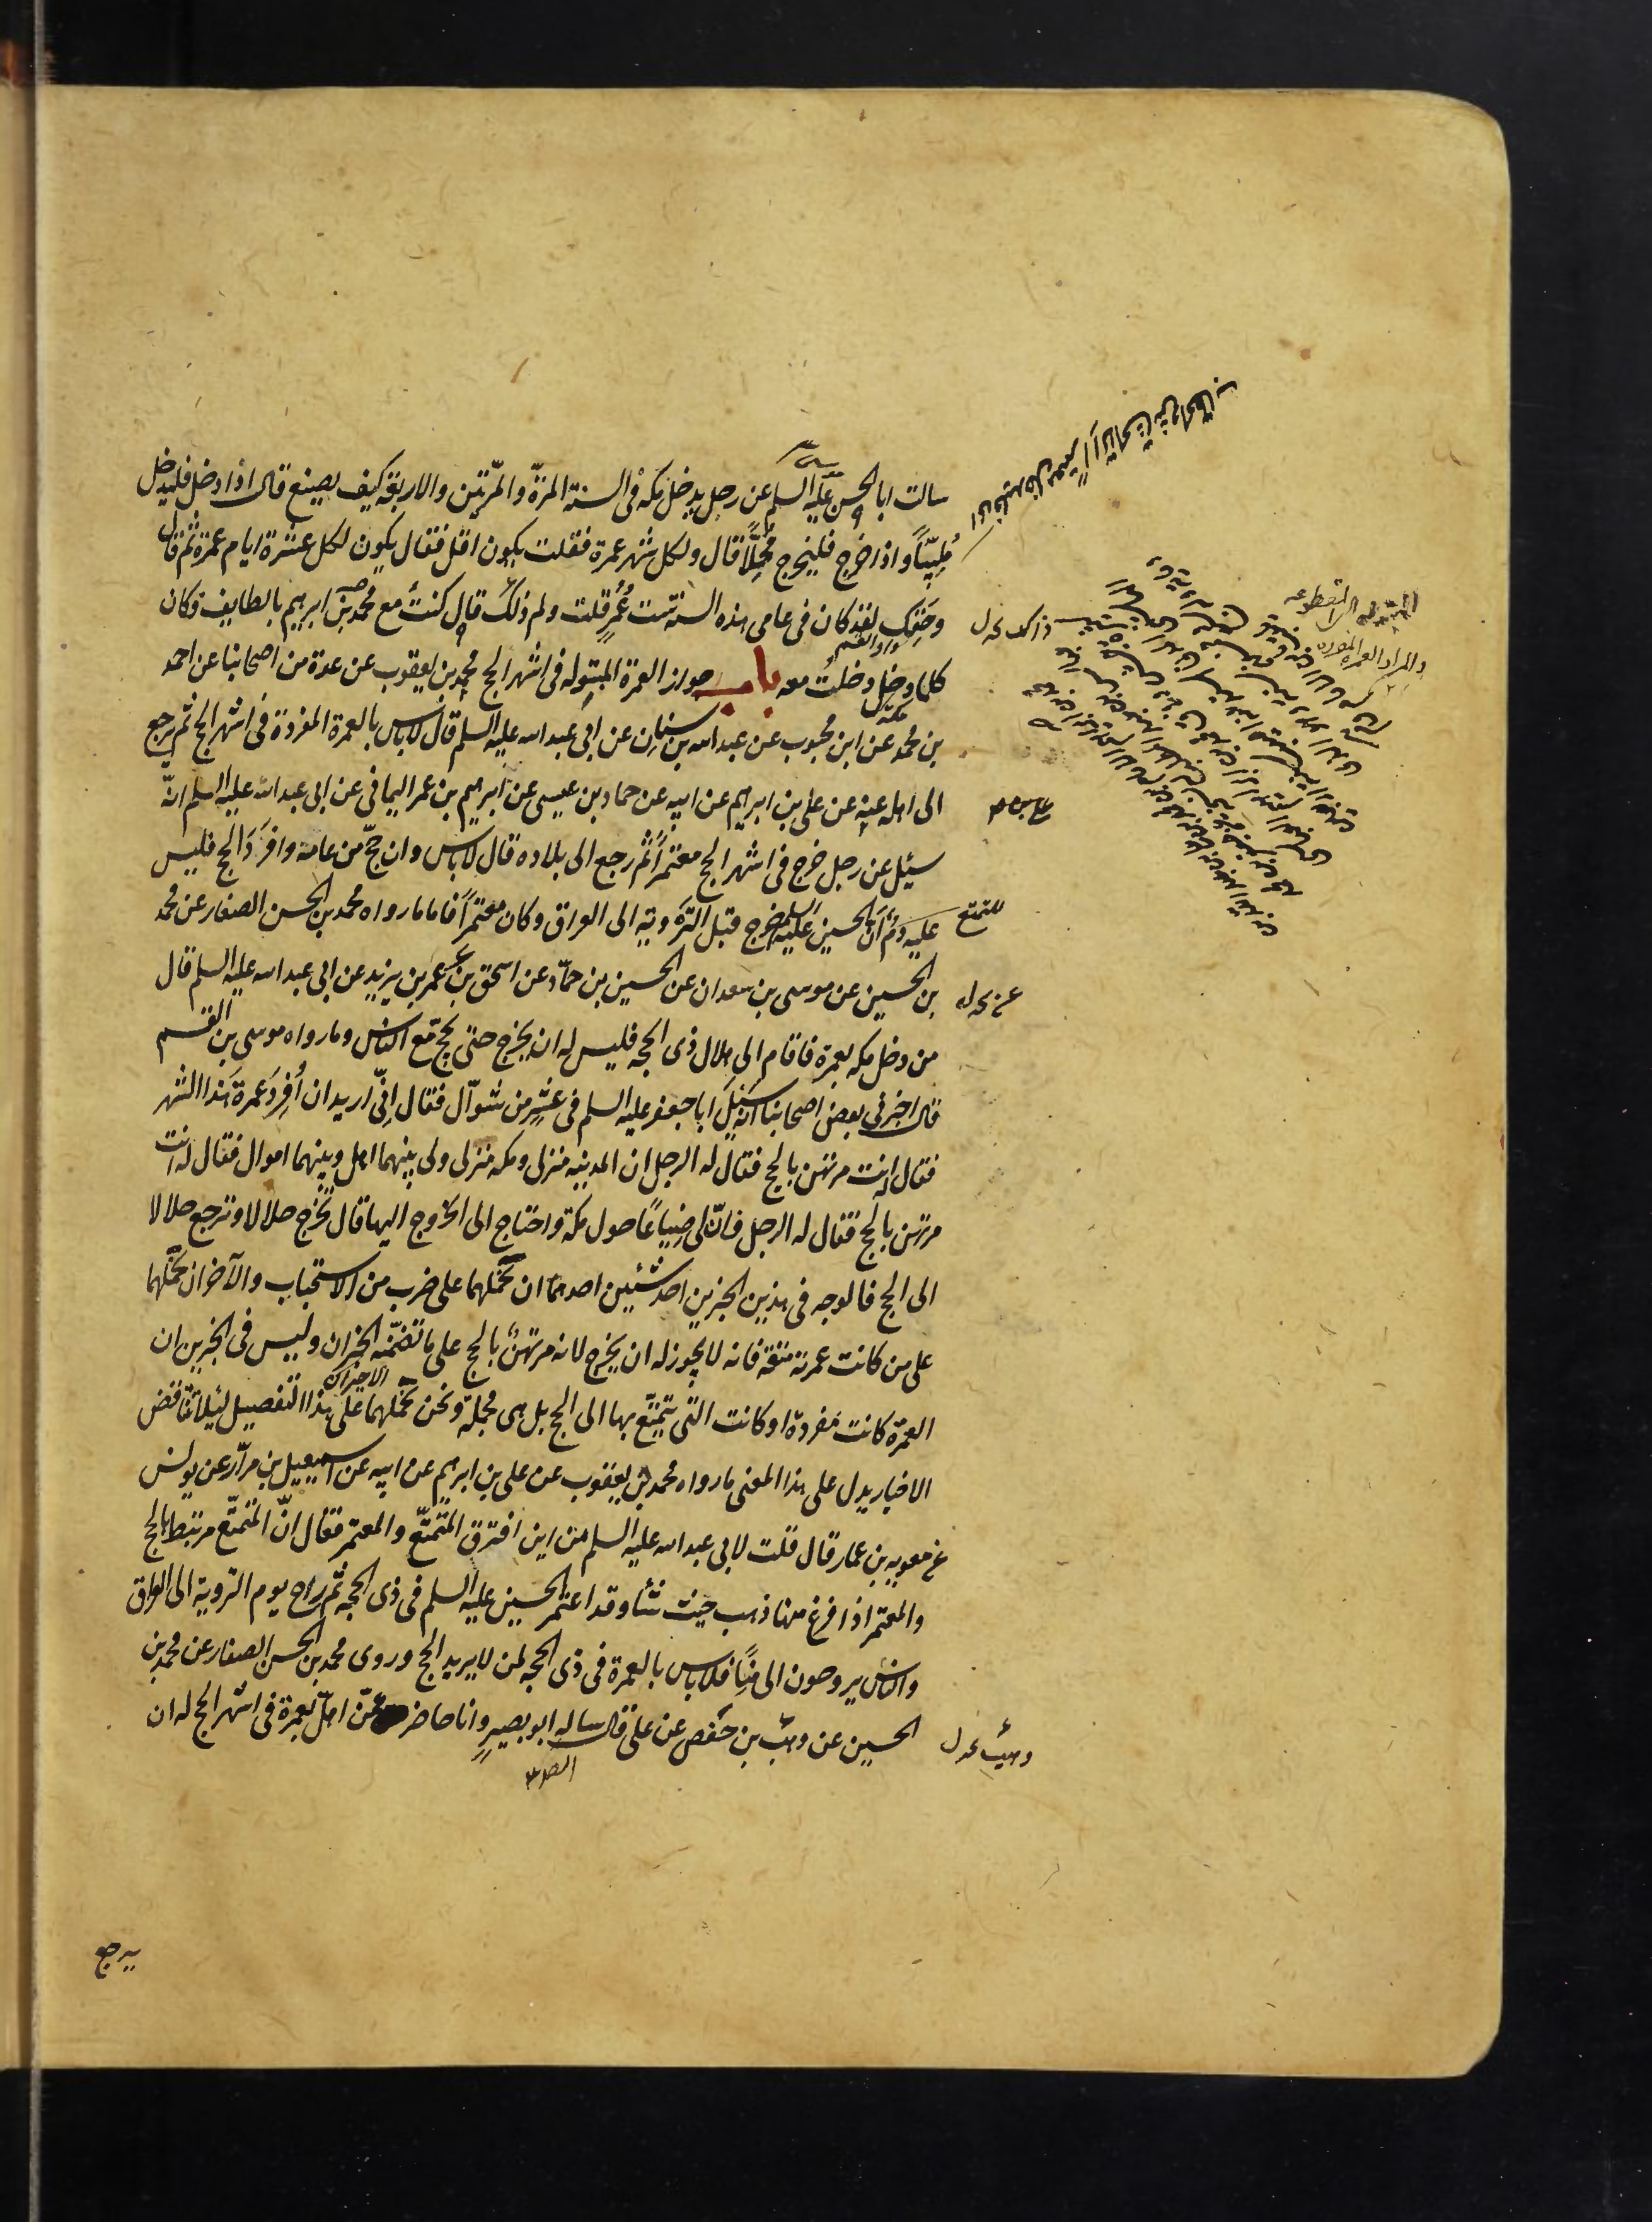 سالت ابا الحسن عليه السلم عن رجل يدخل مكة فى السنة المرّة والمرّتين والاربعة كيف يصنع قال اذا دخل فليدخل
مُلبّيًا واذا خرج فليخرج مُحِلًّا قال ولكل شهر عمرة فقلت يكون اقل فقال يكون لكل عشرة ايام عمرة ثم قال
وحَقِّك لقد كان فى عامى هذه السنة ستّ عُمَرٍ قلت ولم ذلك قال كنتُ مع محمد بن ابرهيم بالطايف وكان
كلما دخل دخلتُ معه باب جواز العمرة المبتولة فى اشهر الحج محمد بن يعقوب عن عدة من اصحابنا عن احمد
بن محمد عن ابن محبوب عن عبد الله بن سنان عن ابى عبد الله عليه السلم قال لاباس بالعمرة المفردة فى اشهر الحج ثم يرجع
الى اهله عنه عن على بن ابرهيم عن ابيه عن حماد بن عيسى عن ابرهيم بن عمر اليمانى عن ابى عبد الله عليه السلم انّه
سئل عن رجل خرج فى اشهر الحج معتمرًا ثم رجع الى بلاده قال لاباس وان حجّ من عامه وافرَدَ الحج فليس
عليه دم انّ الحسين عليه السلم خرج قبل التروية الى العراق وكان معتمرًا فاما ما رواه محمد بن الحسن الصفار عن محمد
بن الحسين عن موسى بن سعدان عن الحسين بن حمّاد عن اسحق بن عمر بن يزيد عن ابى عبد الله عليه السلم قال
من دخل مكه بعمرة فاقام الى هلال ذى الحجه فليس له ان يخرج حتى يحج مع الناس وما رواه موسى بن القسم
قال اخبرنى بعض اصحابنا انه سئل ابا جعفر عليه السلم فى عشرٍ من شوّال فقال انّى اريد ان اُفرِدَ عمرة هذا الشهر
فقال انت مرتهن بالحج فقال له الرجل ان المدينه منزلى ومكه منزلى ولى بينهما اهل وبينهما اموال فقال له انت
مرتهن بالحج فقال له الرجل فانّ لى ضياعًا حول مكة واحتاج الى الخروج اليها قال تخرج حلالا وترجع حلالا
الى الحج فالوجه فى هذين الخبرين احد شئين احدهما ان نحملهما على ضرب من الاستحباب والآخر ان نحملهما
على من كانت عمرته متعة فانه لا يجوز له ان يخرج لانه مرتهنٌ بالحج على ما تضمّنه الخبران وليس فى الخبرين ان
العمرة كانت مفردة او كانت التى يتمتّع بها الى الحج بل هى مجملة ونحن نحملهما على هذا التفصيل لئلا تتناقض
الاخبار يدل على هذا المعنى ما رواه محمد بن يعقوب عن على بن ابرهيم عن ابيه عن اسمعيل بن مرّار عن يونس
عن معويه بن عمار قال قلت لابى عبد الله عليه السلم من اين افترق المتمتّع والمعتمر فقال انّ المتمتّع مرتبط بالحج
والمعتمر اذا فرغ منها ذهب حيث شاء وقد اعتمر الحسين عليه السلم فى ذى الحجه ثم راح يوم التروية الى العراق
والناس يروحون الى منًا فلاباس بالعمرة فى ذى الحجه لمن لا يريد الحج وروى محمد بن الحسن الصفار عن محمد بن
الحسين عن وهب بن حفص عن على قال ساله ابو بصير وانا حاضر عمّن اهلّ بعمرة فى اشهر الحج له ان
والمراد العمرة المفردة
للتمتع
يرجع